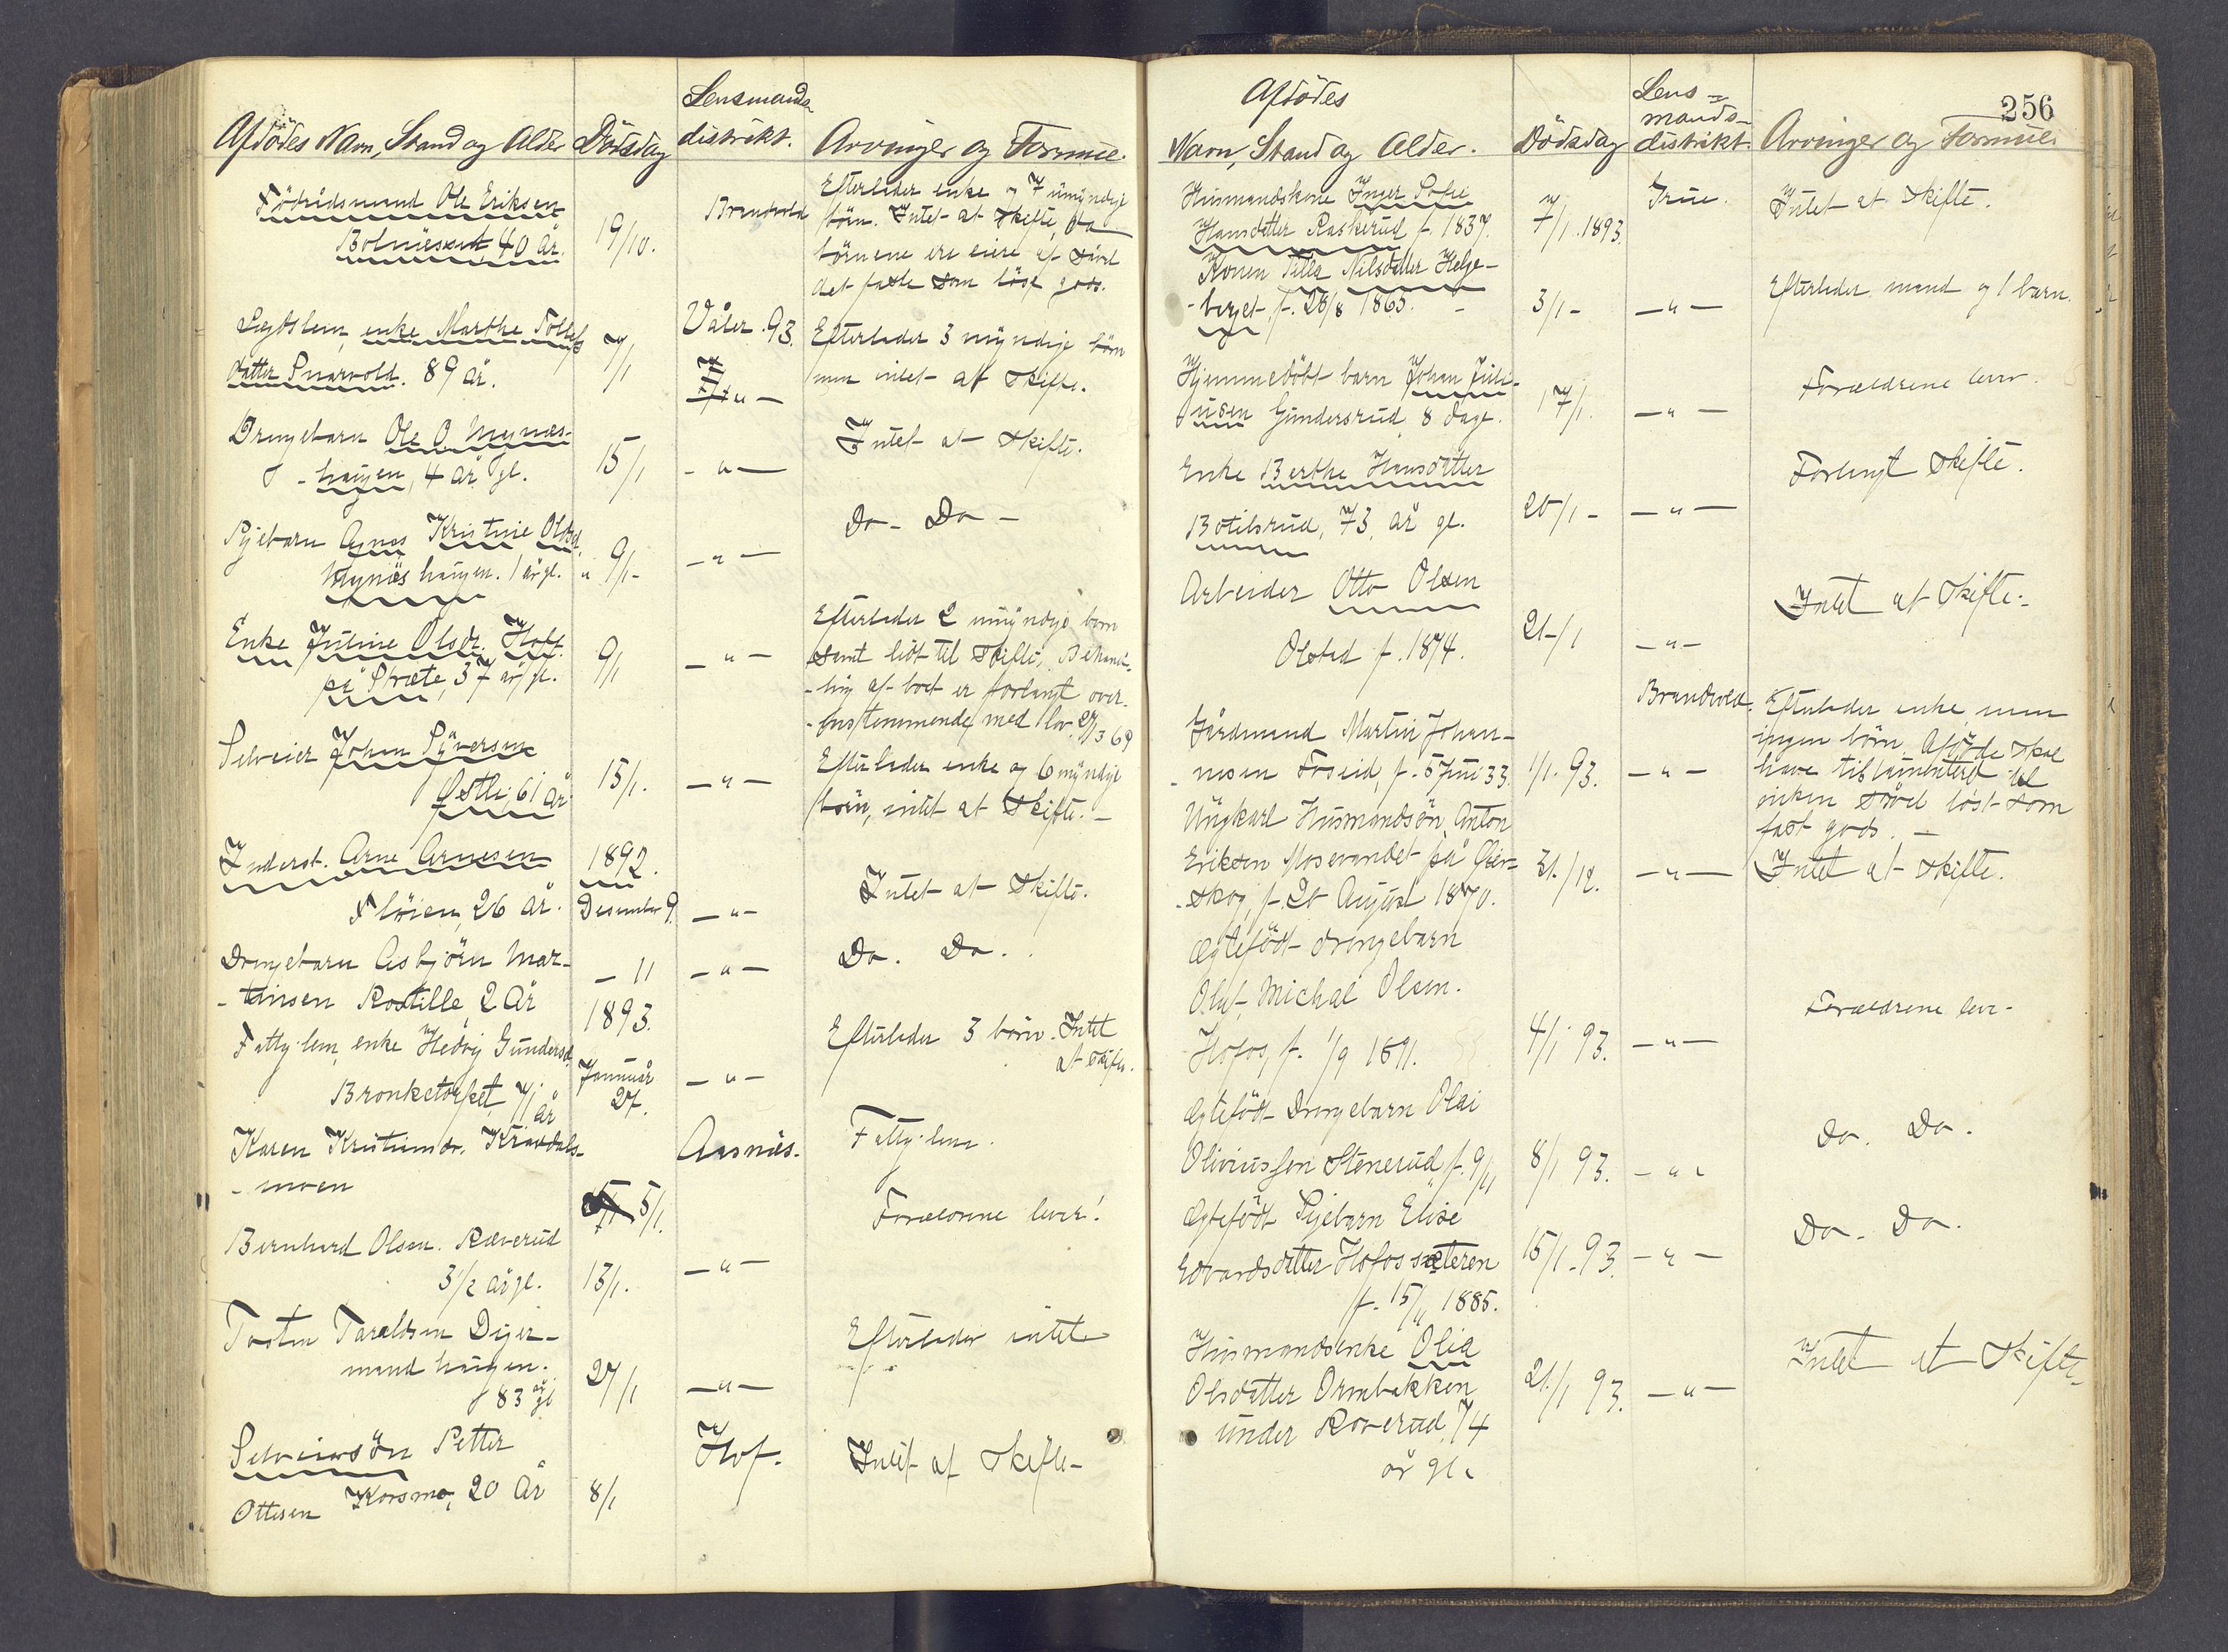 Lensmands
Afdödes Navn, Stand og Alder Dödsdag distrikt. Arvinger og Formue.
Födrådsmand Ole Eriksen
Bolnæsset, 40 år. 19/10. Brandvold
Efterlader enke og 7 umyndige
börn. Intet at skifte, da
börnene ere eiere af såvel
det faste som löst gods.
Lægdslem, enke Marthe Tollefs
datter Snarvold. 89 år. 7/1 Våler. 93.
Efterlader 3 myndige börn
men intet at skifte.
Drengebarn Ole O. Mynæs-
haugen, 4 år gl. 15/1 - " - Intet at skifte.
Pigebarn Agnes Kristine Olsd.
Mynæshaugen. 1 år gl. " 9/1 - - " - Do - Do -
Enke Juline Olsdr. Hoff
på Stræte, 37 år gl. 9/1 - " -
Efterlader 2 umyndige børn
samt lidt til skifte. Behand-
-ling af boet er forlangt over-
-ensstemmende med lov 27/3 69
Selveier Johan Syversen
Østli, 61 år 15/1. - " -
Efterlader enke og 6 myndige
börn, intet at skifte. -
Inderst. Arne Arnesen 1892.
Flöien, 26 år. Desember 9. - " - Intet at skifte.
Drengebarn Asbjörn Mar-
-tinsen Rostille, 2 År - 11 - " - Do. Do.
1893.
Fattiglem, enke Hedvig Gundersd.
Bronketorpet, 71 år Januar 27. - " -
Efterlader 3 børn. Intet
at skifte.
Karen Kristiansdr. Kravdals-
- moen 5/1. Aasnæs. Fattiglem.
Bernhard Olsen. Ræverud
3 1/2 år gl. 13/1. - " - Forældrene lever!
Tosten Taraldsen Diger-
mand haugen.
83 år gl 27/1 - " - Efterlader intet
Selveiersön Petter
Ottesen Korsmo, 20 År 8/1 Hof. Intet at skifte -
256
Afdödes Lens-
mands-
Navn, Stand og Alder. Dödsdag distrikt. Arvinger og Formue.
Husmandskone Inger Sofie
Hansdatter Raskerud f. 1837. 7/1. 1893. Grue. Intet at skifte.
Konen Nilsdatter Helge-
-berget f. 28/8 1865. - 3/1 - - " - Efterlader mand og 1 barn.
Hjemmedöbt barn Johan Juli-
usen Gundersrud 8 dage. 17/1. - " - Forældrene lever.
Enke Berthe Hansdatter
Botilsrud, 73, år gl. 20/1 - - " - Forlangt skifte.
Arbeider Otto Olsen
Olsted f. 1874. 21/1 - " - Intet at skifte.
Brandvold.
Gårdmand Martin Johan-
- nesen Foseid, f. 5 Juni 33. 1/1. 93. - " -
Efterlader enke, men
ingen börn. Afdöde skal
have testamenteret til
enken såvel löst som
fast gods. -
Ungkarl Husmandsön Anton
Eriksen Mosevandet på Öier-
-skog, f. 20 August 1870. 31./12. - " - Intet at skifte.
Ægtefödt drengebarn
Oluf Michal Olsen.
Hofos, f. 1/9 1891. 4/1 93. - " - Forældrene lever -
Ægtefödt Drengebarn Olai
Oliviussen Stenerud, f. 9/11 8/1 93. - " - Do. Do.
Ægtefödt Pigebarn Elise
Edvardsdatter Hofossæteren
f. 15/11 1885. 15/1. 93. - " - Do - Do.
Husmandsenke Olia
Olsdatter Ormbakken
under Roverud, 74
år gl. 21./1 93. - " - Intet at skifte -